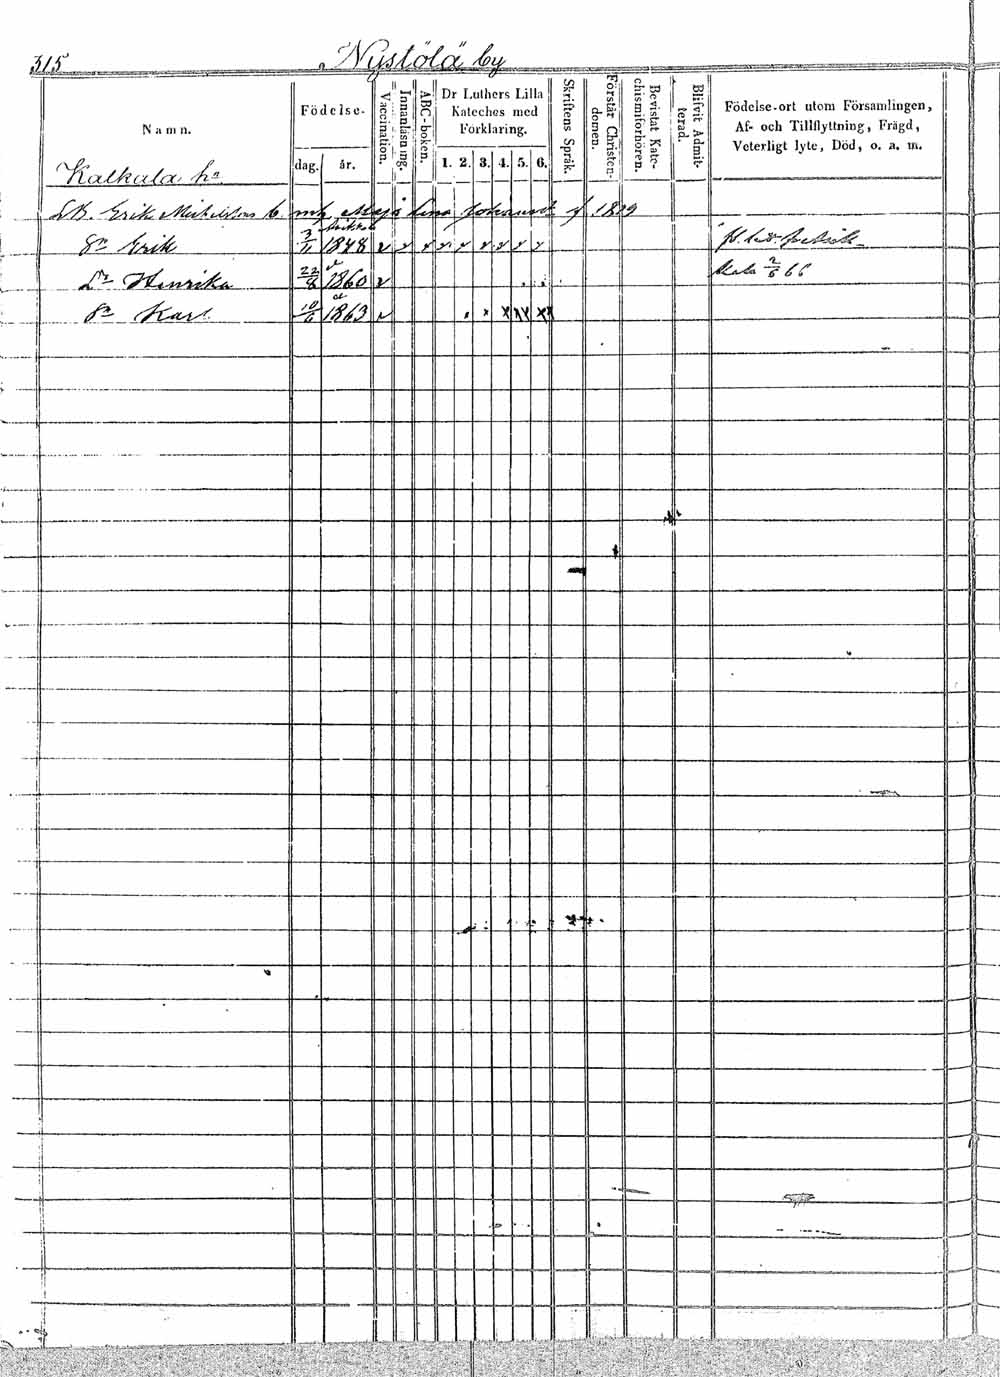 315 Nystölä by
Namn.
Födelse-
dag. år.
Vaccination.
Innanläsning.
ABC-boken.
Dr Luthers Lilla
Kateches med
Förklaring.
1. 2. 3. 4. 5. 6.
Skriftens Språk.
Förstår Christen-
domen.
Bevistat Kate-
chismiförhören.
Blifvit Admit-
terad.
Födelse-ort utom Församlingen,
Af- och Tillflyttning, Frägd,
Veterligt lyte, Död, o. a. m.
Kalkala
Erik Michelsson Maja Lena 1819
Erik 3/11 1848
Henrika 22/8 1860 2/6 66
Karl 10/6 1863